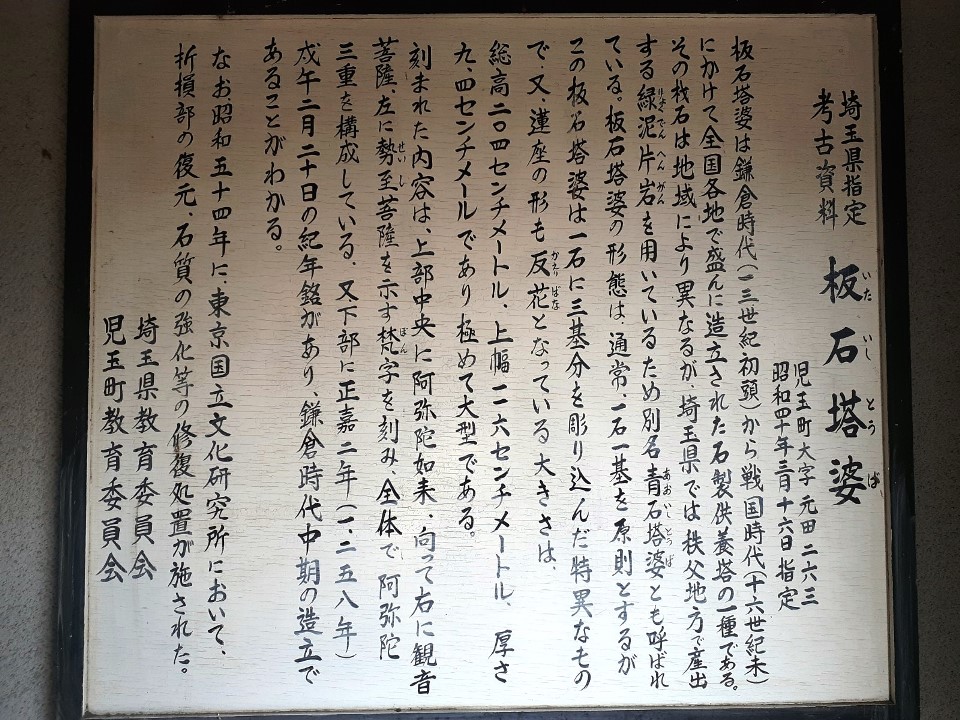 埼玉県指定
考古資料
板石塔婆
いた いし とう ば
児玉町大字元田二六三
昭和四十年三月十六日指定
板石塔婆は鎌倉時代(一三世紀初頭)から戦国時代(十六世紀末)
にかけて全国各地で盛んに造立された石製供養塔の一種である。
その材石は地域により異なるが、埼玉県では秩父地方で産出
する緑泥片岩を用いているため別名青石塔婆とも呼ばれ
ている。板石塔婆の形態は、通常、一石一基を原則とするが
この板石塔婆は一石に三基分を彫り込んだ特異なもの
で、又、蓮座の形も反花となっている大きさは、
総高二〇四センチメートル、上幅一一六センチメートル、厚さ
九、四センチメールであり極めて大型である。
刻まれた内容は、上部中央に阿弥陀如来、向って右に観音
菩薩、左に勢至菩薩を示す梵字を刻み、全体で阿弥陀
三重を構成している、又下部に正嘉二年(一、二五八年)
戊午二月二十日の紀年銘があり、鎌倉時代中期の造立で
あることがわかる。
なお昭和五十四年に、東京国立文化研究所において、
折損部の復元、石質の強化等の修復処置が施された。
埼玉県教育委員会
児玉町教育委員会